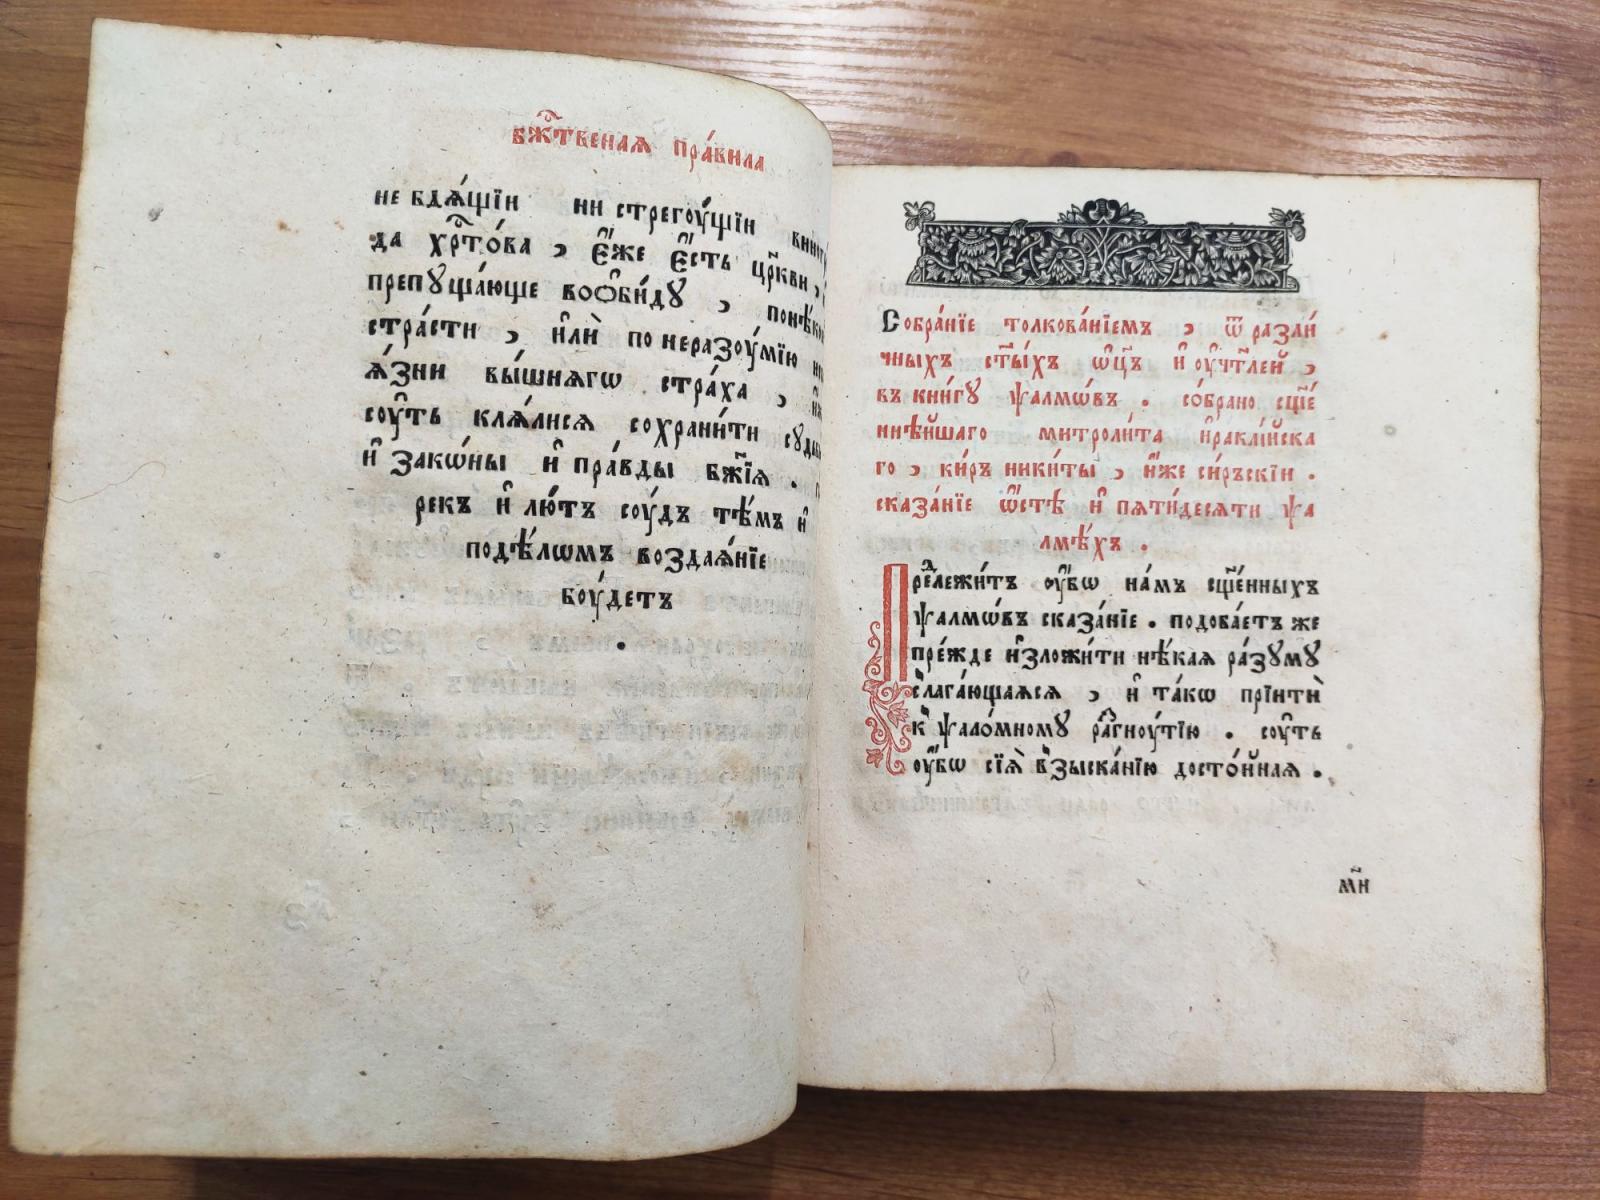 бж҃твеная пра́вила
не бдѧ́щїи ни стрегꙋ́щїи
да хрⷭ҇то́ва , є҆́же є҆́сть цр҃кви ,
препꙋща́юще во ѻ҆би́дꙋ ,
стра́сти , и҆лѝ по неразоу́мїю
ѧ҆́зни вы́шнѧгѡ стра́ха ,
соу́ть клѧ́лисѧ сохрани́ти
и҆ зако́ны и҆ пра́вды бж҃їѧ .
рекъ и҆ лю́тъ соу́дъ тѣ́мъ и҆
подѣ́лѡмъ воздаѧ́нїе
боу́детъ
.
Собра́нїе толкова́нїемъ , ѿ разли́
чныхъ ст҃ы́хъ ѻ҆ц҃ъ и҆ оу҆чт҃лей ,
въ кни́гꙋ ѱалмѡ́въ . со́брано сщ҃е́
ннѣ́йшаго митроли́та и҆ракли́йска
го , ки́ръ ники́ты , и҆́же си́ръскїи .
сказа́нїе ѡ҆ стѣ̀ и҆ пѧти́десѧти ѱа
лмѣ́хъ .
Пре́длежи́тъ оу҆́бѡ на́мъ сщ҃е́нныхъ
ѱалмѡ́въ сказа́нїе . подоба́етъ же
пре́жде и҆зложи́ти нѣ́каѧ ра́зꙋмꙋ
слага́ющаѧсѧ , и҆ та́кѡ прїитѝ
к ѱало́мномꙋ рагноу́тїю . соу́ть
оу҆́бѡ сїѧ̀ взыска́нїю досто́йнаѧ .
м҃и